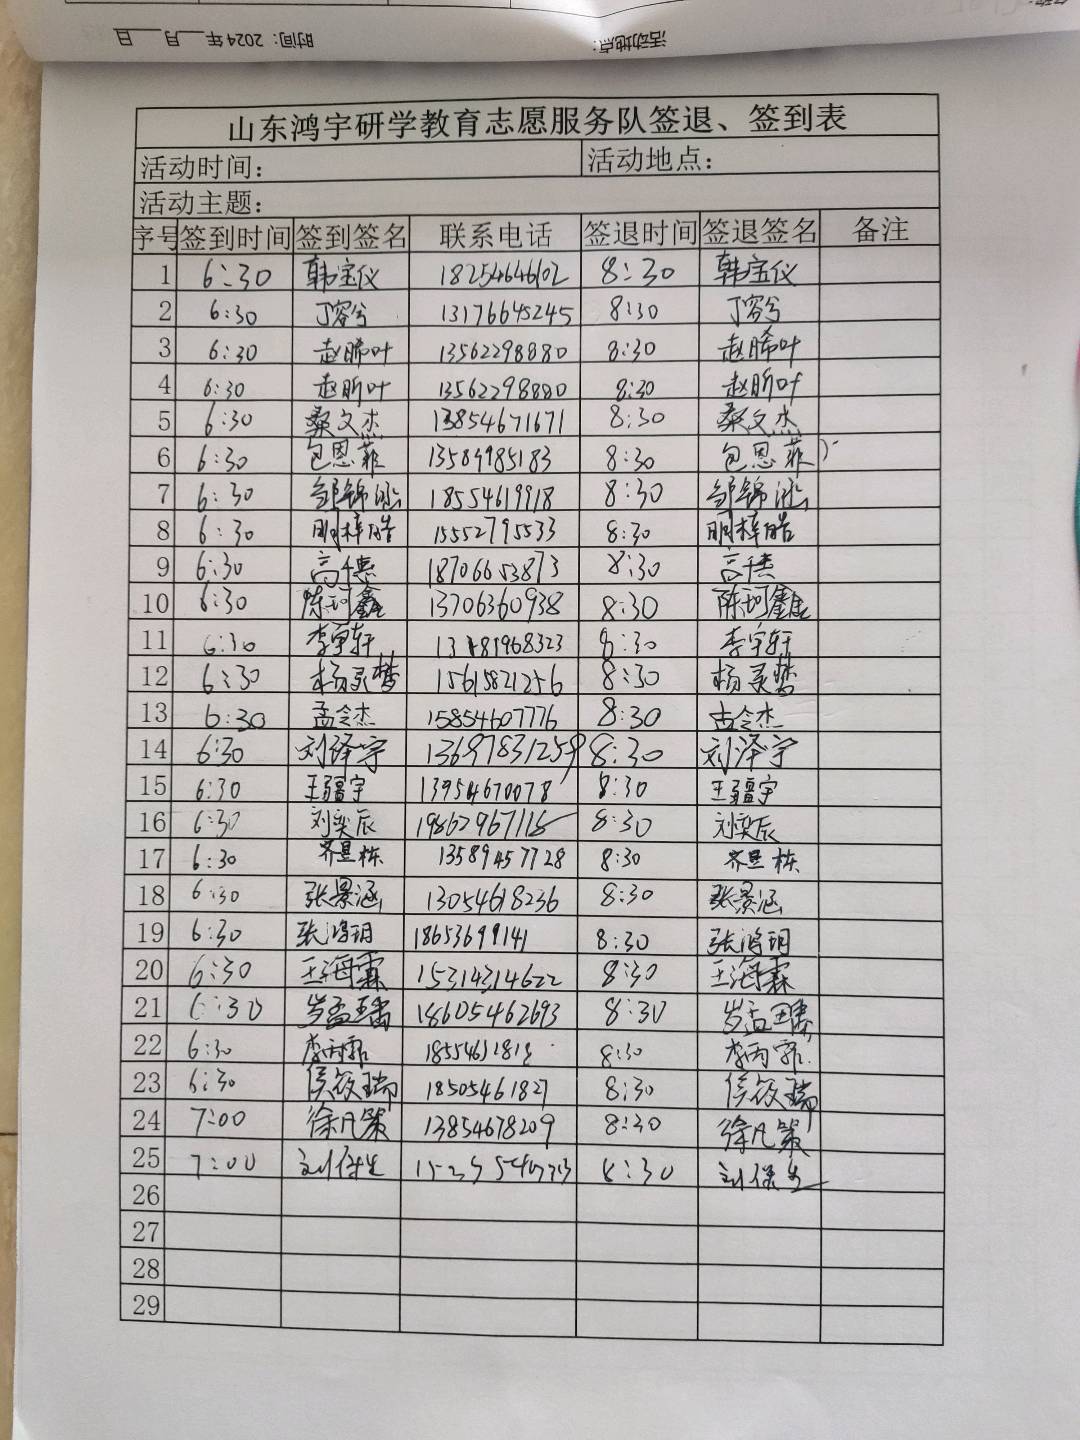 时间：2024年__月__日
活动地点：
山东鸿宇研学教育志愿服务队签退、签到表
活动时间： 活动地点：
活动主题：
序号 签到时间 签到签名 联系电话 签退时间 签退签名 备注
1 6:30 韩宝仪 18254646102 8:30 韩宝仪
2 6:30 丁容兮 13176645245 8:30 丁容兮
3 6:30 赵晞叶 13562298880 8:30 赵晞叶
4 6:30 赵昕叶 13562298880 8:30 赵昕叶
5 6:30 桑文杰 13854671671 8:30 桑文杰
6 6:30 包恩菲 13589985183 8:30 包恩菲
7 6:30 邹锦泓 18554619918 8:30 邹锦泓
8 6:30 明梓皓 15552795533 8:30 明梓皓
9 6:30 高 18706653873 8:30 高
10 6:30 陈珂鑫 13706360938 8:30 陈珂鑫
11 6:30 李宇轩 13181968323 8:30 李宇轩
12 6:30 杨灵梦 15615821256 8:30 杨灵梦
13 6:30 孟令杰 15854607776 8:30 孟令杰
14 6:30 刘泽宇 13697831259 8:30 刘泽宇
15 6:30 王疆宇 13954670078 8:30 王疆宇
16 6:30 刘奕辰 19862967115 8:30 刘奕辰
17 6:30 齐昱栋 13589457728 8:30 齐昱栋
18 6:30 张景涵 13054618236 8:30 张景涵
19 6:30 张鸿玥 18653699141 8:30 张鸿玥
20 6:30 王海霖 15314314622 8:30 王海霖
21 6:30 岁孟 18605462693 8:30 岁孟
22 6:30 李丙 8:30 李丙
23 6:30 侯筱瑞 18505461827 8:30 侯筱瑞
24 7:00 徐凡策 13854678209 8:30 徐凡策
25 7:00 刘保生 8:30 刘保生
26
27
28
29